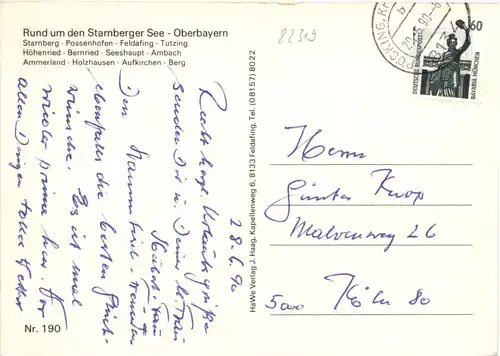 Rund um den Starnberger See - Oberbayern
Starnberg - Possenhofen - Feldafing - Tutzing
Höhenried - Bernried - Seeshaupt - Ambach
Ammerland - Holzhausen - Aufkirchen - Berg
82319
POCKING, Kr
b
29.-6.90-
8134
60
DEUTSCHE BUNDESPOST
BAVARIA MÜNCHEN
28.6.90
Recht herzl. Urlaubsgrüße
senden Dir u. Deiner lb. Frau
Den
ebenfalls die besten Glück-
wünsche. Es ist mal
wieder prima hier. Vor
allen Dingen tolles Wetter
HaWe Verlag J. Haag, Kapellenweg 6, 8133 Feldafing, Tel. (08157) 8022
Herrn
Günter Knop
Malvenweg 26
5000 Köln 80
Nr. 190